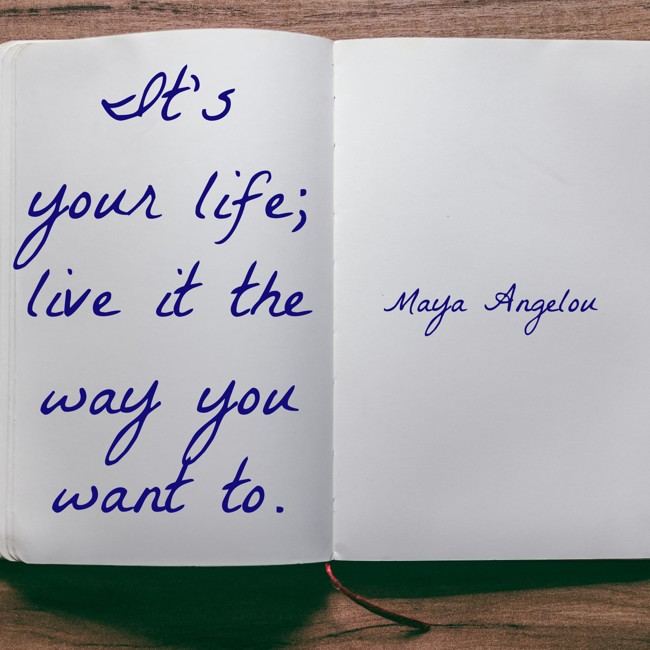 It's
your life;
live it the
way you
want to.
Maya Angelou